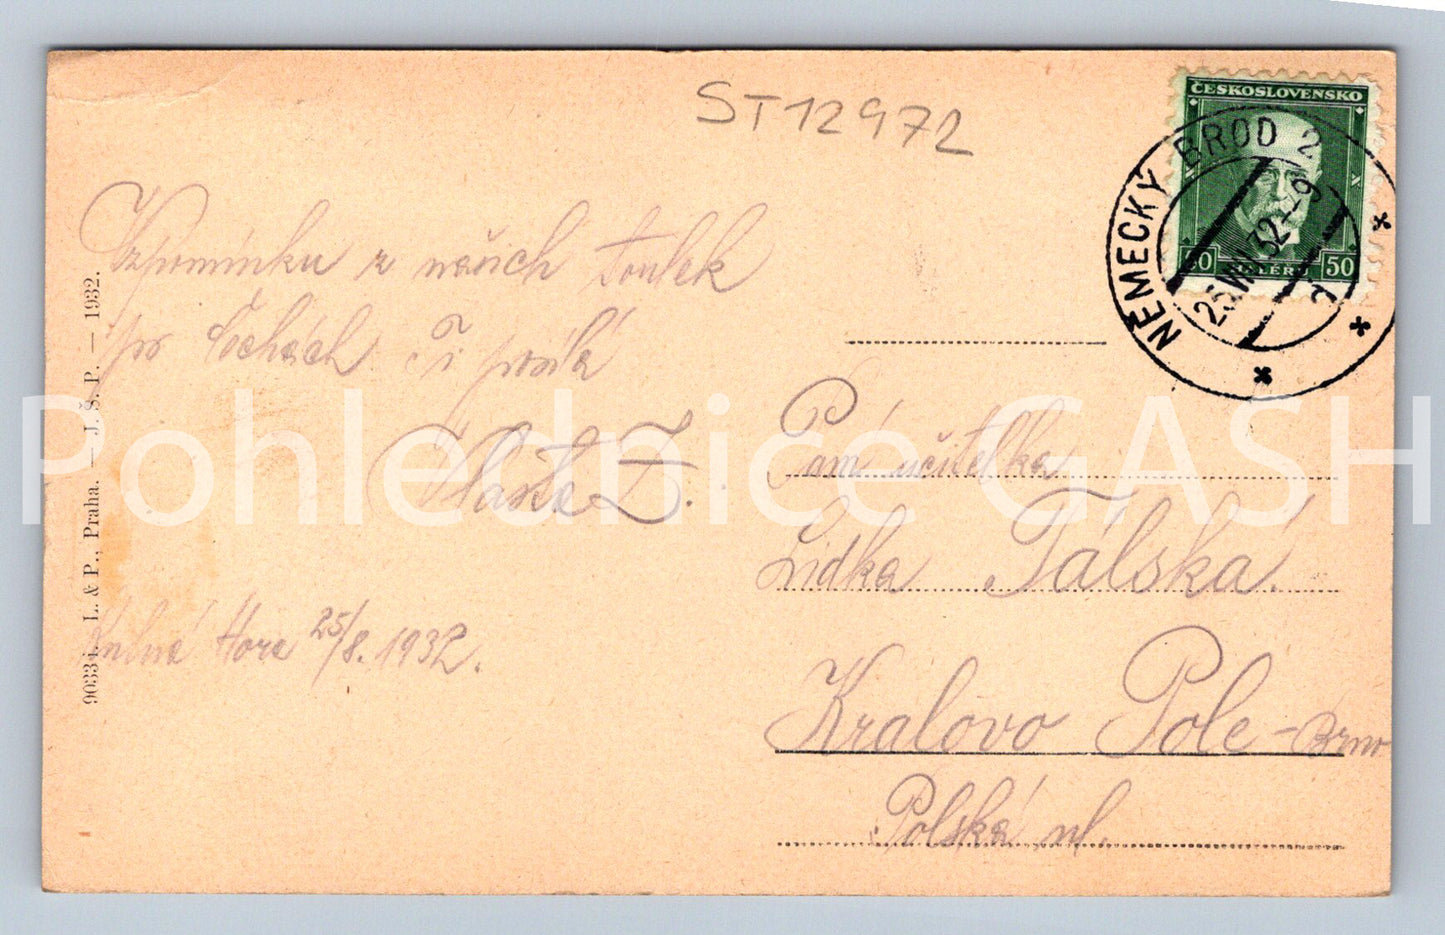 ST12972
ČESKOSLOVENSKO
50 HALÉŘŮ 50
NĚMECKÝ BROD 2
25.VIII.32.-9
Vzpomínku z našich toulek
po Čechách Ti posílá
Vlasta Z.
Kutná Hora 25/8. 1932.
90334. L. & P., Praha. — J. Š. P. — 1932.
Pam učitelka
Lidka Tálská.
Královo Pole - Brno
Polská ul.
Pohlednice GASH